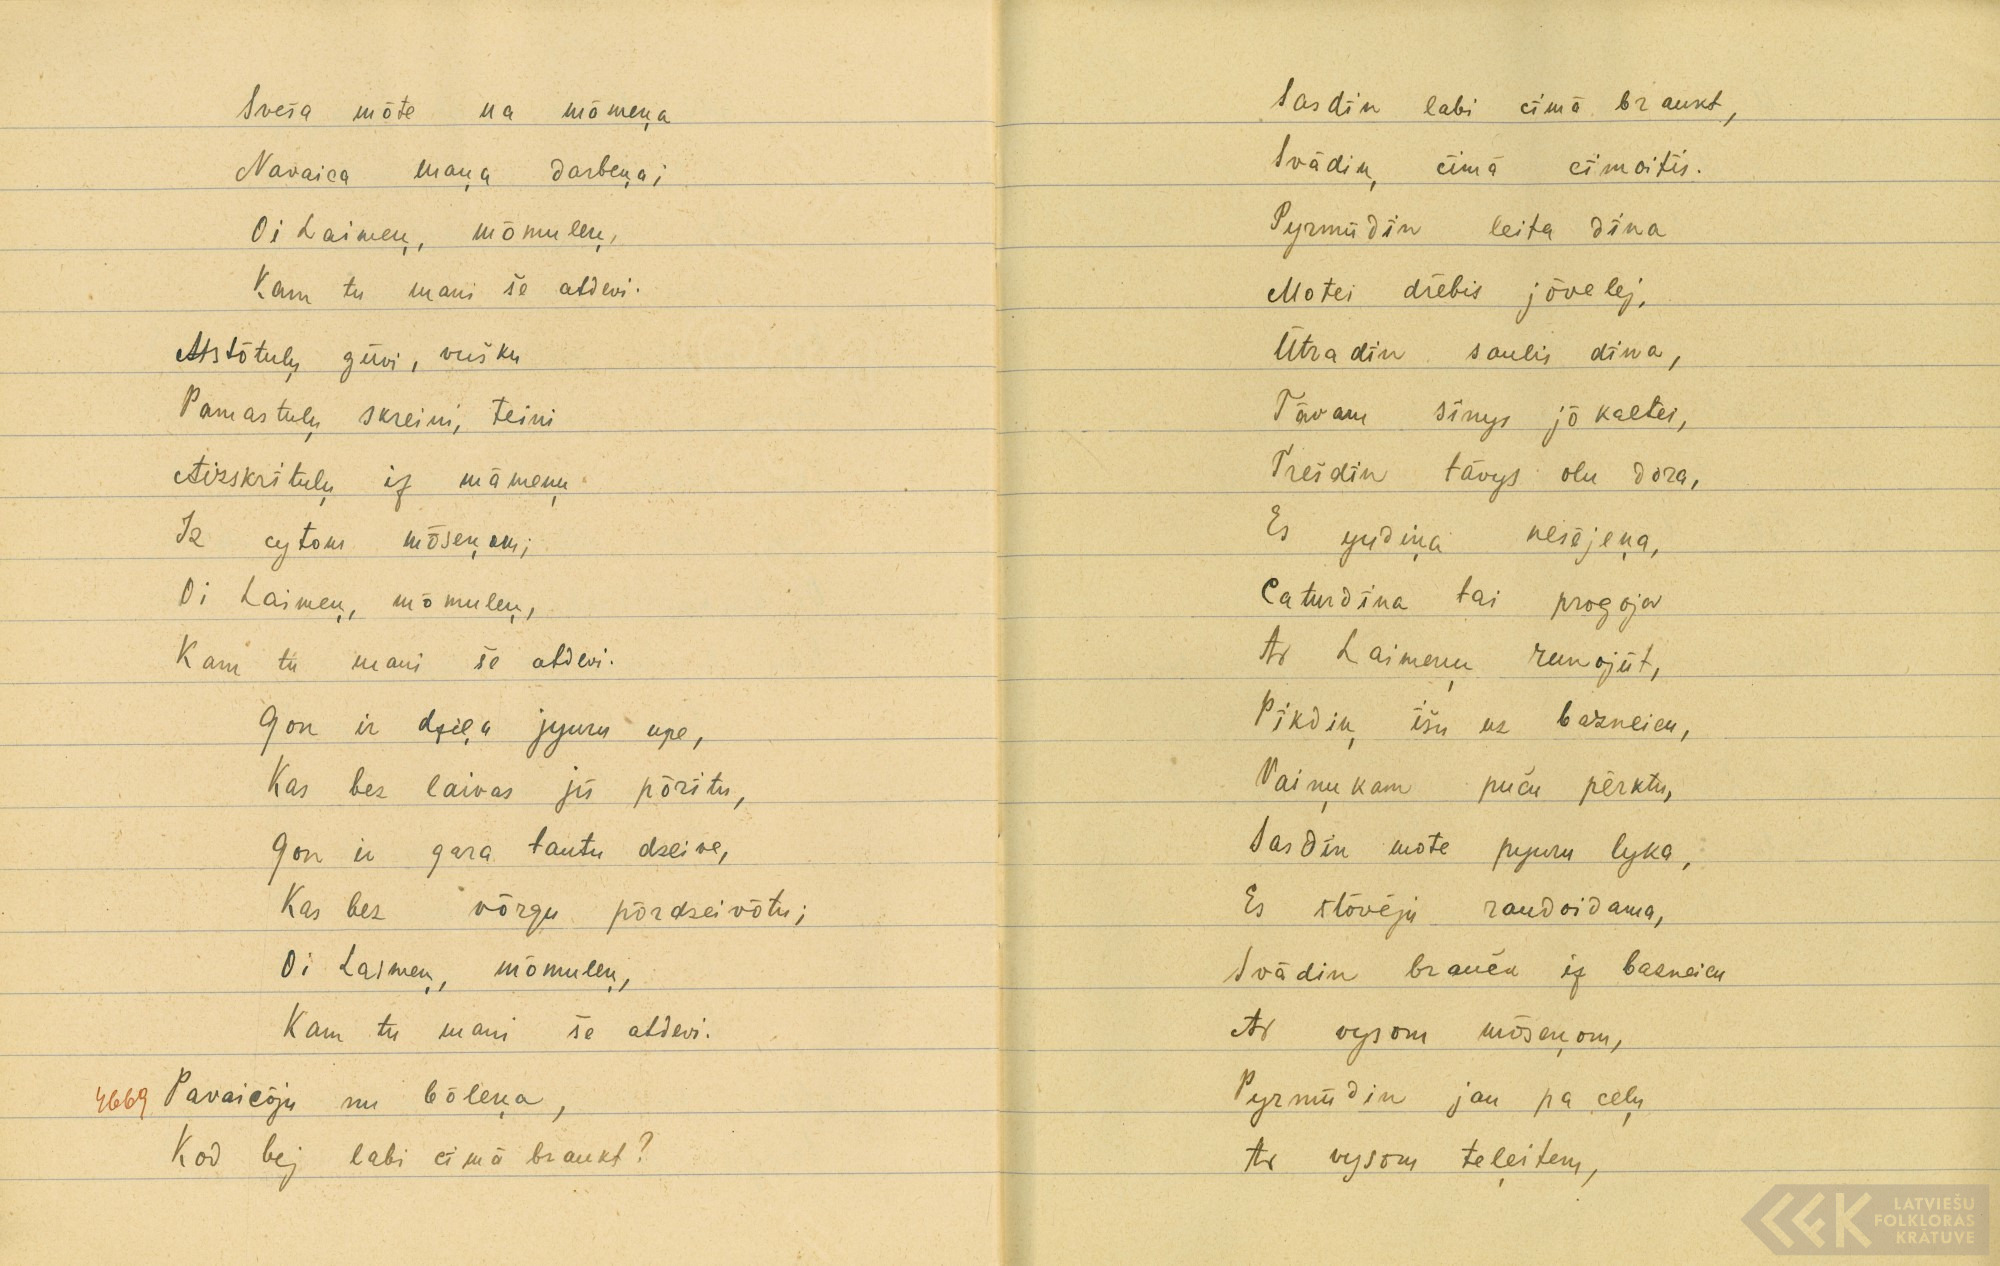 Sveša mōte na mōmeņa
Navaica maņa darbeņa;
Oi Laimeņ, mōmuleņ,
Kam tu mani še atdevi.
Atstōtuļ gūvi, vušku
Pamastuļ skreini, teini
Aizskrītuļ iz māmeņu
Iz cytom mōseņom;
Oi Laimeņ, mōmuleņ,
Kam tu mani še atdevi.
Gon ir dziļa jyuru upe,
Kas bez laivas jū pōrītu,
Gon ir gara tautu dzeive,
Kas bez vōrgu pōrdzeivōtu;
Oi Laimeņ, mōmuleņ,
Kam tu mani še atdevi.
4669 Pavaicōju nu bōleņa,
Kod bej labi cīmā braukt?
Sasdīn labi cīmā braukt,
Svādiņ cīmā cīmoitīs.
Pyrmūdīn leita dīna
Motei drēbis jōvelej,
Ūtradīn saulis dīna,
Tāvam sīnys jō kaltei,
Trešdīn tāvys olu dora,
Es yudiņa nesējeņa,
Caturdīna tai progojа
Ar Laimeņu runojūt,
Pīkdiņ īšu uz bazneicu,
Vainukam puču pērktu,
Sasdīn mote pyuru lyka,
Es stōvēju raudoidama,
Svādin brauču iz bazneicu
Ar vysom mōseņom,
Pyrmūdin jau pa ceļu
Ar vysom teļeitem,
LATVIEŠU
FOLKLORAS
KRĀTUVE